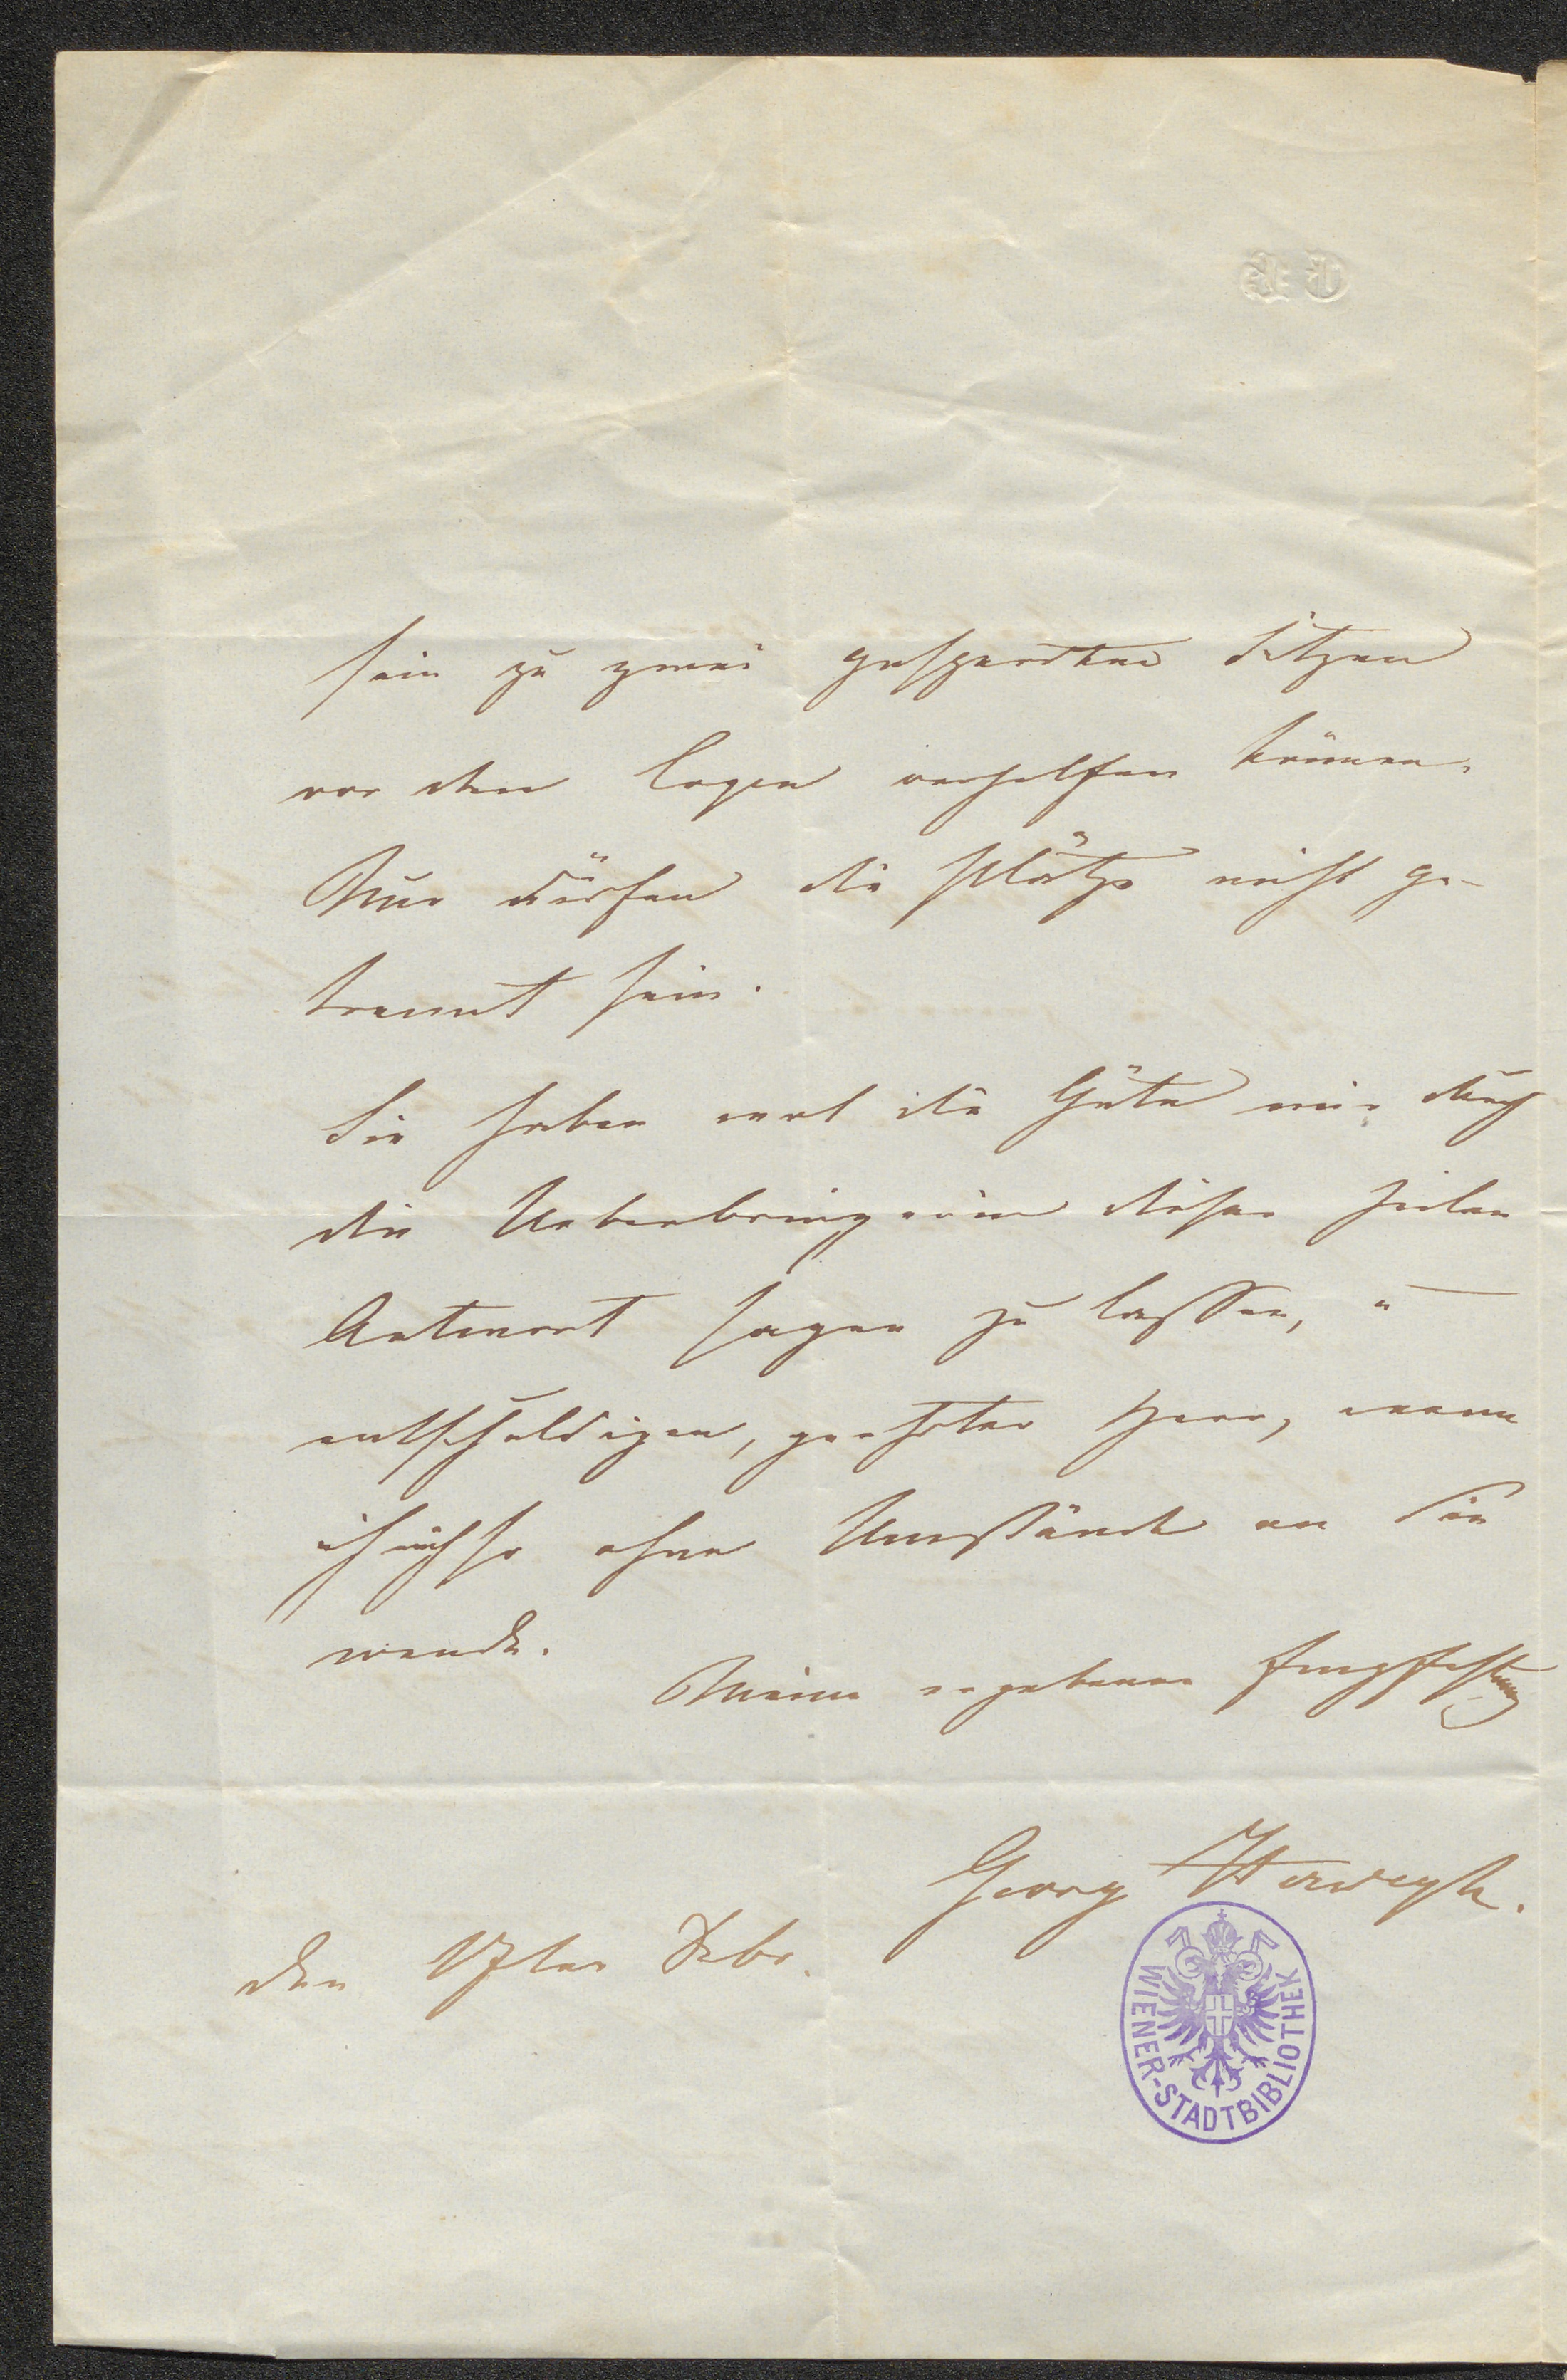 sein zu zwei gesperrten Sitzen
vor den Logen verhelfen können.
Nur dürfen die Plätze nicht ge-
trennt sein.
Sie haben wol die Güte mir durch
die Ueberbringerin dieser Zeilen
Antwort sagen zu lassen, u
entschuldigen, geehrter Herr, wenn
ich mich so ohne Umstände an Sie
wende.
Meine ergebenen Empfehlung
Georg Herwegh.
den 17ten Febr.
WIENER-STADTBIBLIOTHEK